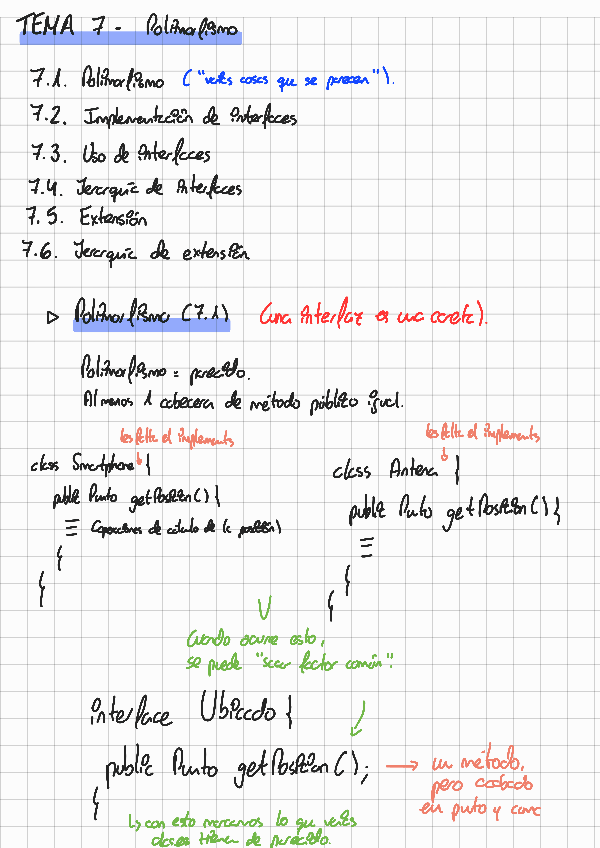 TEMA 7 - Polimorfismo
7.1. Polimorfismo ("varias cosas que se parecen").
7.2. Implementación de interfaces
7.3. Uso de Interfaces
7.4. Jerarquía de Interfaces
7.5. Extensión
7.6. Jerarquía de extensión
▷ Polimorfismo (7.1) (una interfaz es una careta).
Polimorfismo = parecido.
Al menos 1 cabecera de método público igual.
les falta el implements
class Smartphone {
public Punto getPosition() {
≡ (operaciones de cálculo de la posición)
}
}
les falta el implements
class Antena {
public Punto getPosition() {
≡
}
}
Cuando ocurre esto,
se puede "sacar factor común".
interface Ubicado {
public Punto getPosition(); → un método,
pero acabado
en punto y coma
}
↳ con esto marcamos lo que varias
clases tienen de parecido.